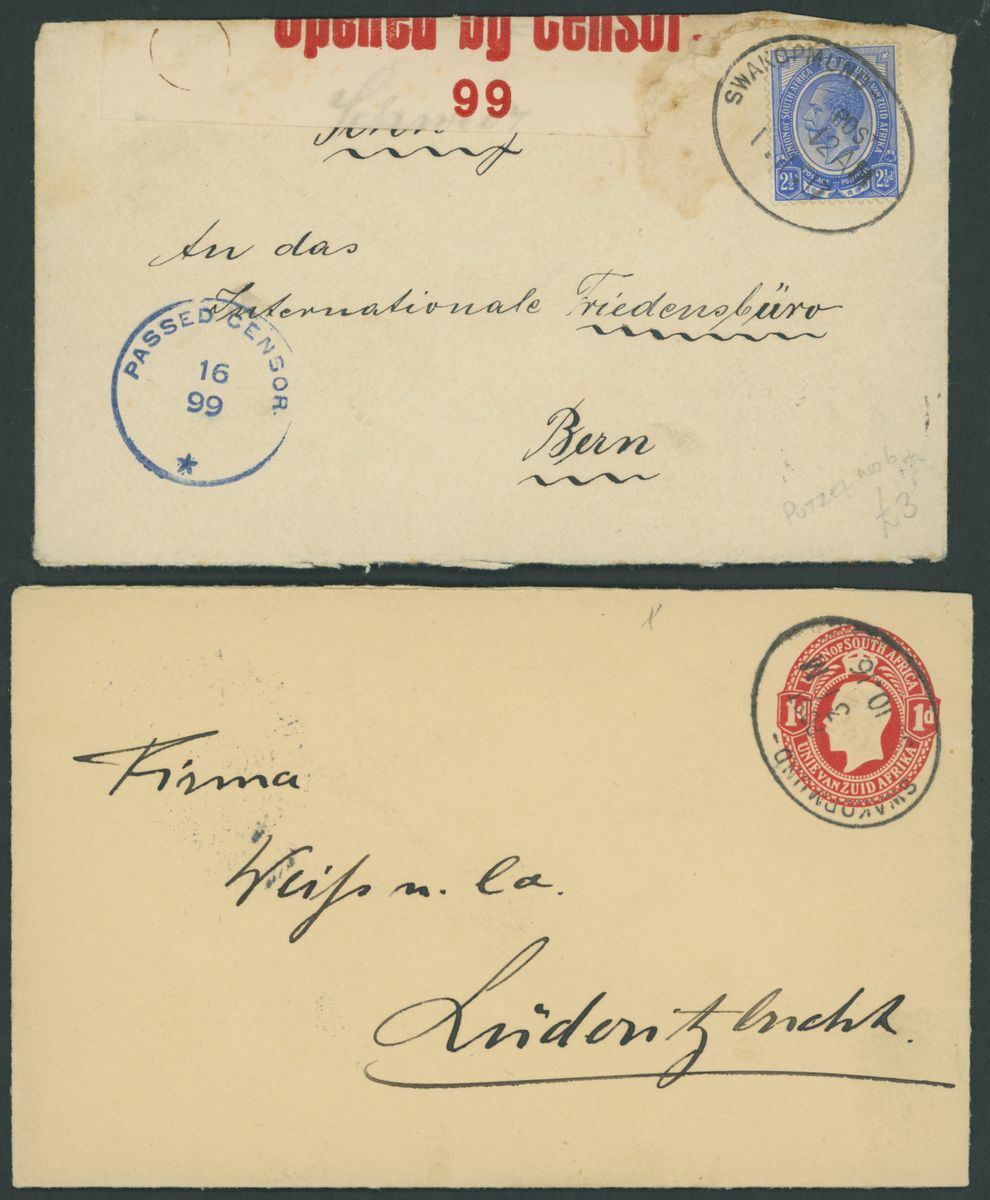 Opened by Censor.
99
Schweiz
SWAKOPMUND
POST
UNION OF SOUTH AFRICA
UNIE VAN ZUID AFRIKA
POSTAGE POSTZEGEL
2½ 2½d
An das
Internationale Friedensbüro
Bern
PASSED CENSOR.
16
99
PUTZEL NO 6
£3
UNION OF SOUTH AFRICA
1d 1d
UNIE VAN ZUID AFRIKA
SWAKOPMUND
Firma
Weiß u. Co.
Lüderitzbucht.